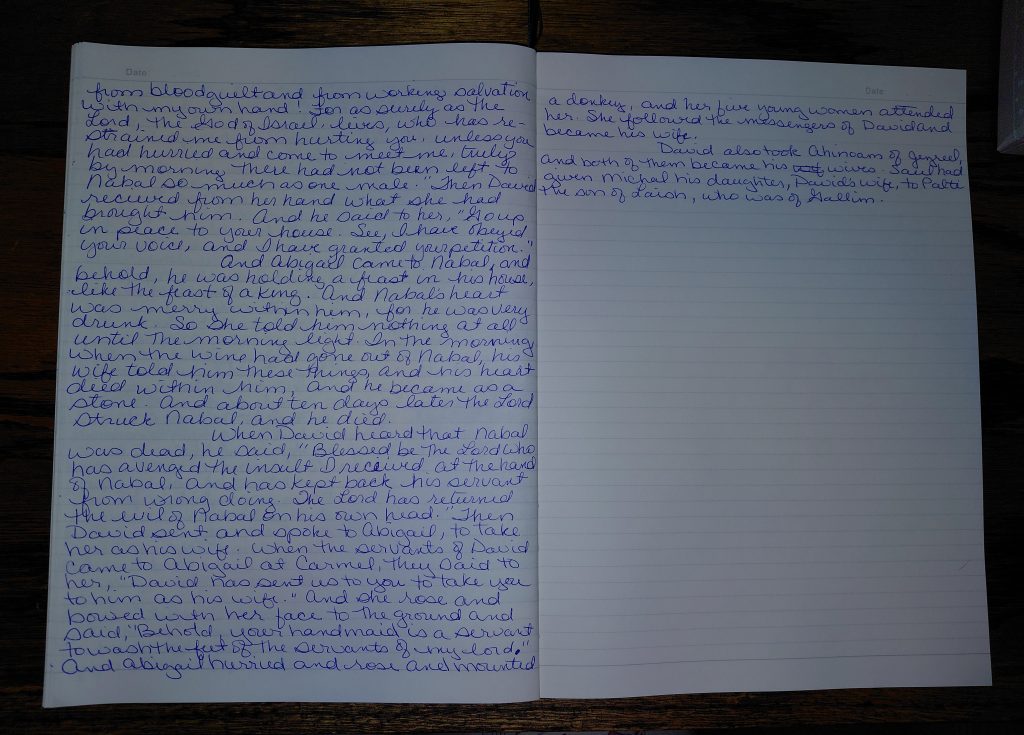 Date
from bloodguilt and from working salvation
with my own hand! For as surely as the
Lord, the God of Israel lives, who has re-
strained me from hurting you, unless you
had hurried and come to meet me, truly
by morning there had not been left to
Nabal so much as one male." Then David
received from her hand what she had
brought him. And he said to her, "Go up
in peace to your house. See, I have obeyed
your voice, and I have granted your petition."
And Abigail came to Nabal, and
behold, he was holding a feast in his house,
like the feast of a king. And Nabal's heart
was merry within him, for he was very
drunk. So she told him nothing at all
until the morning light. In the morning
when the wine had gone out of Nabal, his
wife told him these things, and his heart
died within him, and he became as a
stone. And about ten days later the Lord
struck Nabal, and he died.
When David heard that Nabal
was dead, he said, "Blessed be the Lord who
has avenged the insult I received at the hand
of Nabal, and has kept back his servant
from wrong doing. The Lord has returned
the evil of Nabal on his own head." Then
David sent and spoke to Abigail, to take
her as his wife. When the servants of David
came to Abigail at Carmel, they said to
her, "David has sent us to you to take you
to him as his wife." And she rose and
bowed with her face to the ground and
said, "Behold, your handmaid is a servant
to wash the feet of the servants of my lord."
And Abigail hurried and rose and mounted
Date
a donkey, and her five young women attended
her. She followed the messengers of David and
became his wife.
David also took Ahinoam of Jezreel,
and both of them became his wives. Saul had
given Michal his daughter, David's wife, to Palti
the son of Laish, who was of Gallim.